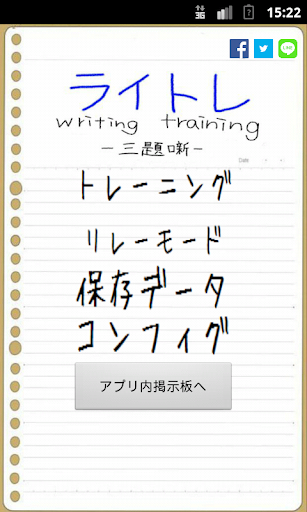 3G 15:22
ライトレ
writing training
-三題噺-
Date
トレーニング
リレーモード
保存データ
コンフィグ
アプリ内掲示板へ